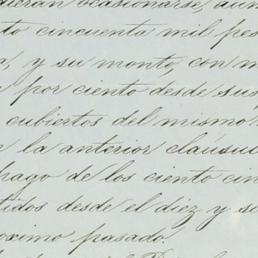 ocasionarse, aun
to cincuenta mil pes
, y su monto, con m
por ciento desde su
cubiertos del mismo
n la anterior cláusu
pago de los ciento cin
tidos desde el diez y s
oximo pasado.